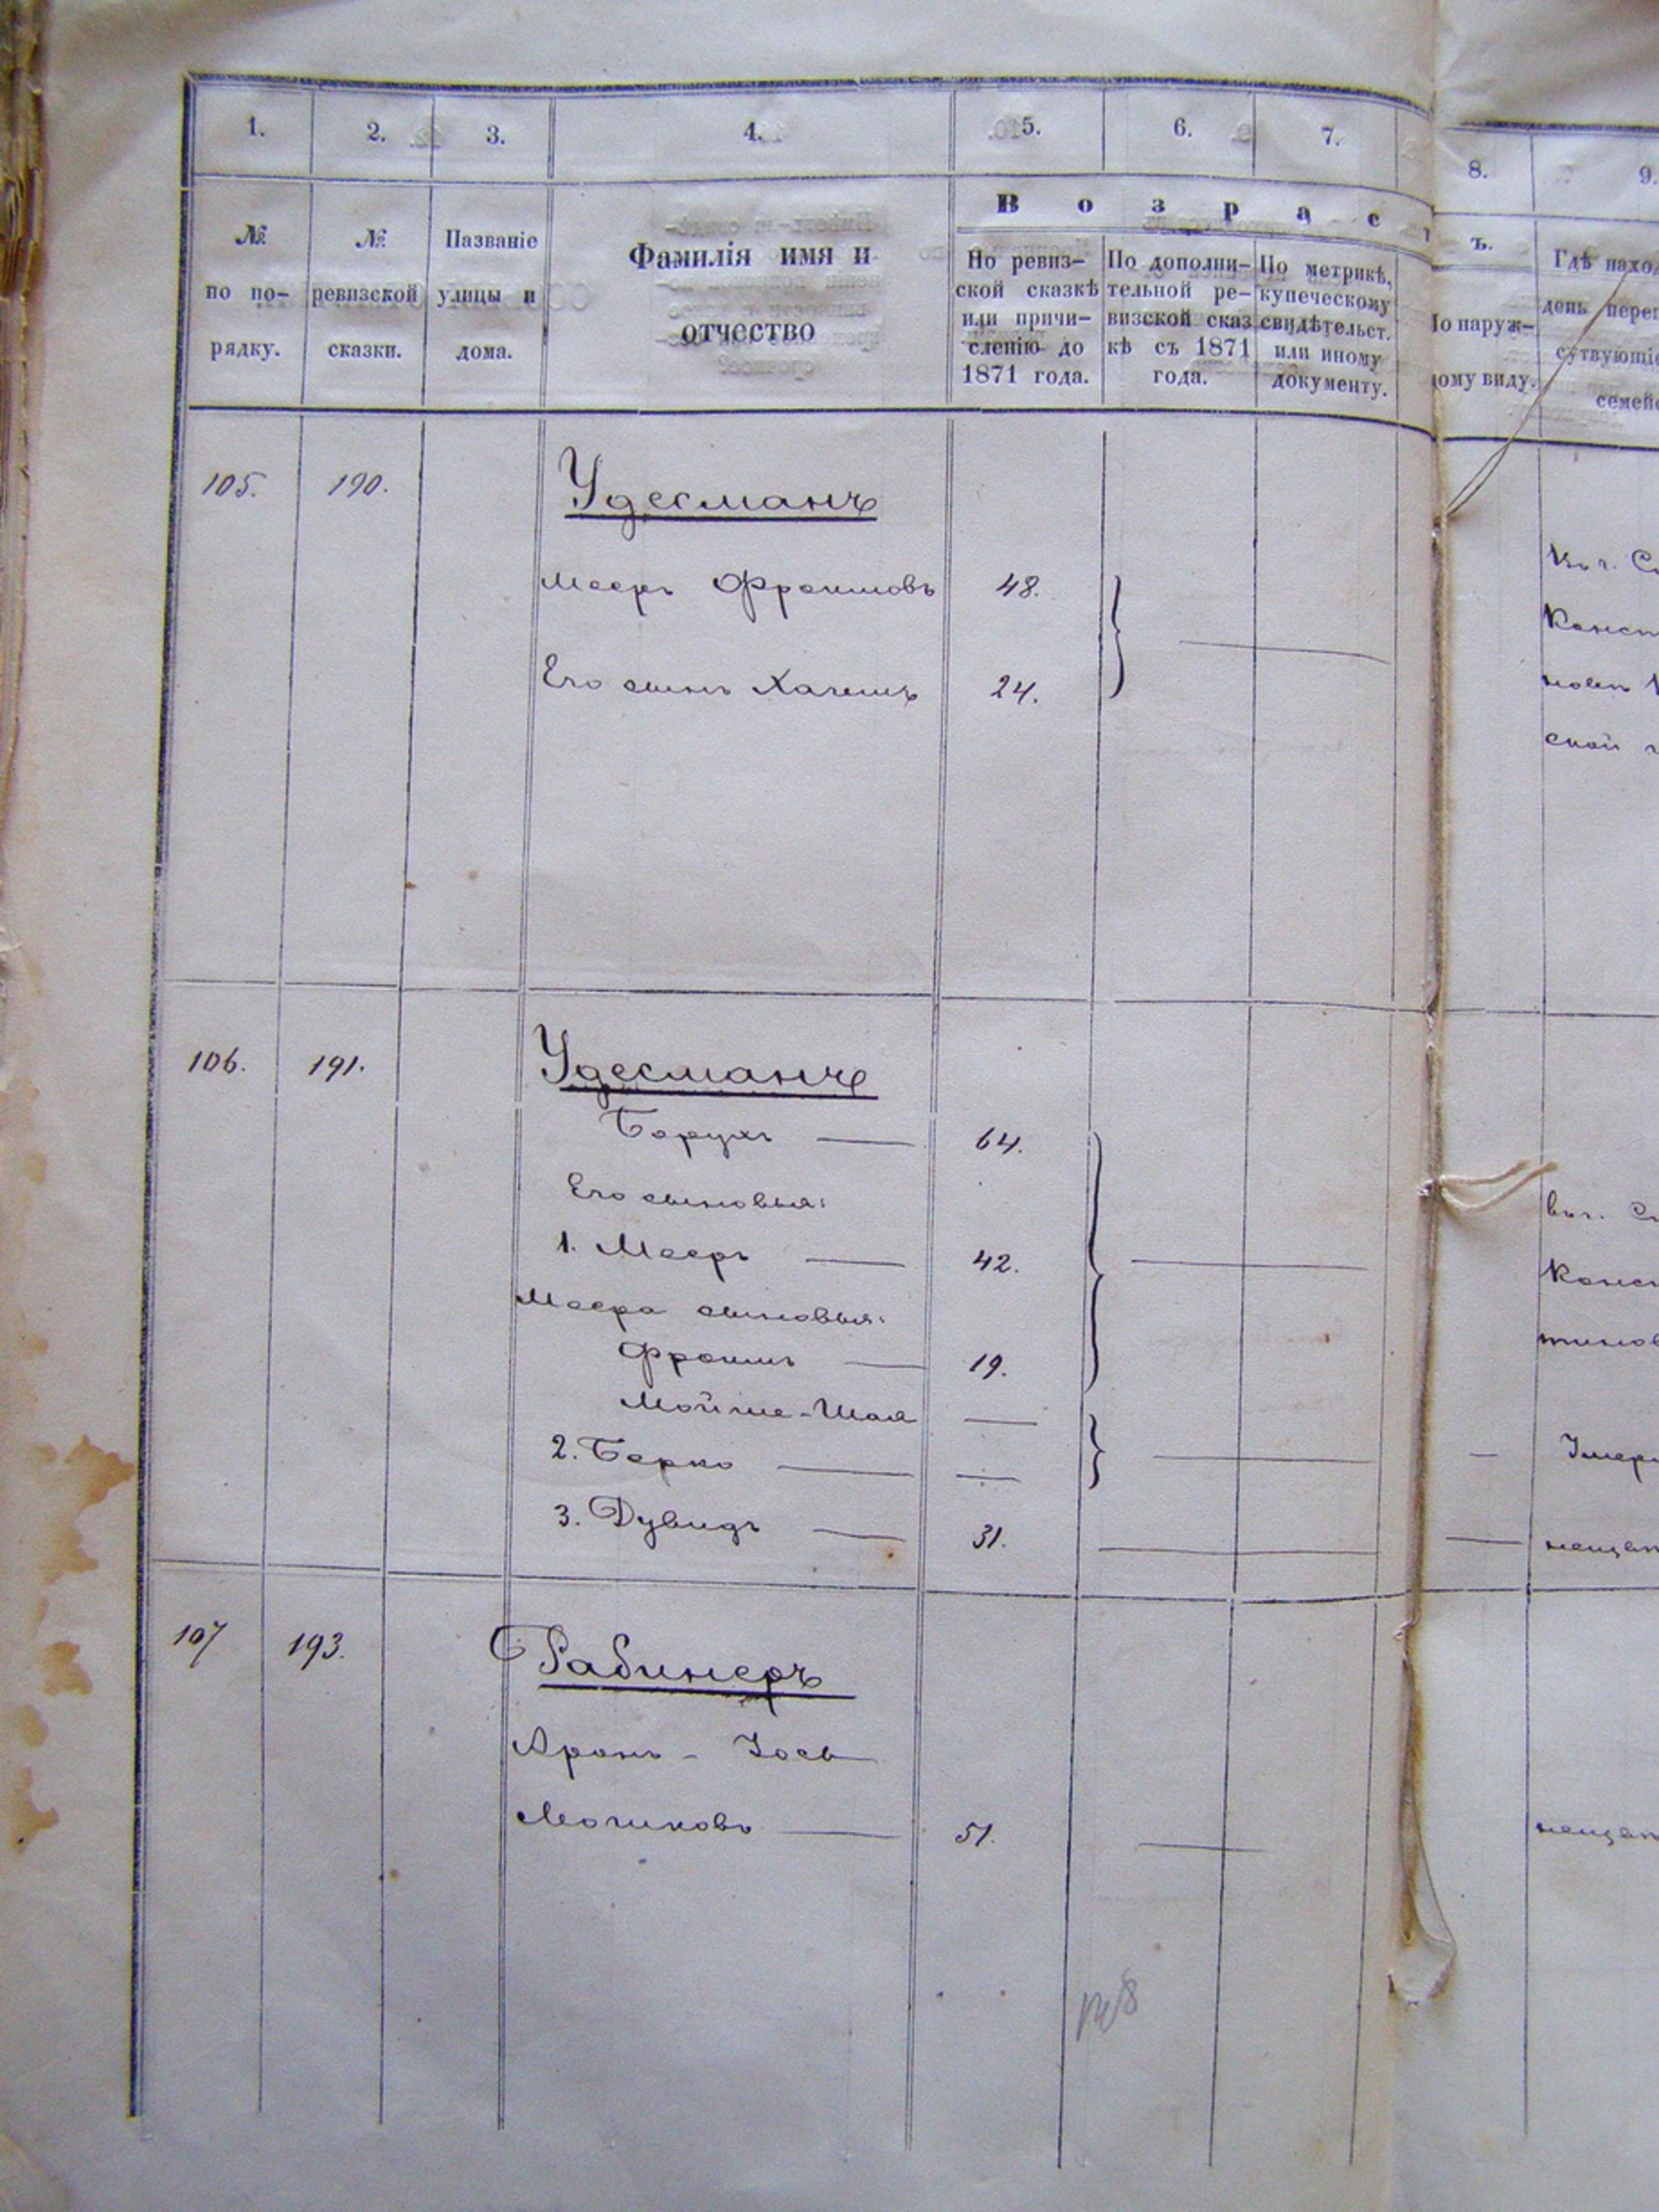 1. 2. 3. 4. 5. 6. 7. 8. 9.
№ по по-рядку.
№ ревизской сказки.
Названіе улицы и дома.
Фамилія имя и отчество
Возрас
ъ.
По ревиз-
ской сказкѣ
или причи-
сленію до
1871 года.
По дополни-
тельной ре-
визской сказ
кѣ съ 1871
года.
По метрикѣ,
купеческому
свидѣтельст.
или иному
документу.
По наруж-
ному виду.
Гдѣ наход
день переп
сутвующіе
семей
105. 190. Удесманъ
Мееръ Фроимовъ 48.
Его сынъ Хаимъ 24.
Въ г.
Конст
ской
106. 191. Удесманъ
Борухъ — 64.
Его сыновья:
1. Мееръ — 42.
Меера сыновья:
Фроимъ — 19.
Мойше-Шая —
2. Берко — —
3. Дувидъ — 31.
въ г.
Конст
тинов
Умер
неизвѣст
107 193. Рабинеръ
Аронъ - Іось
Мошковъ — 51.
неизвѣст